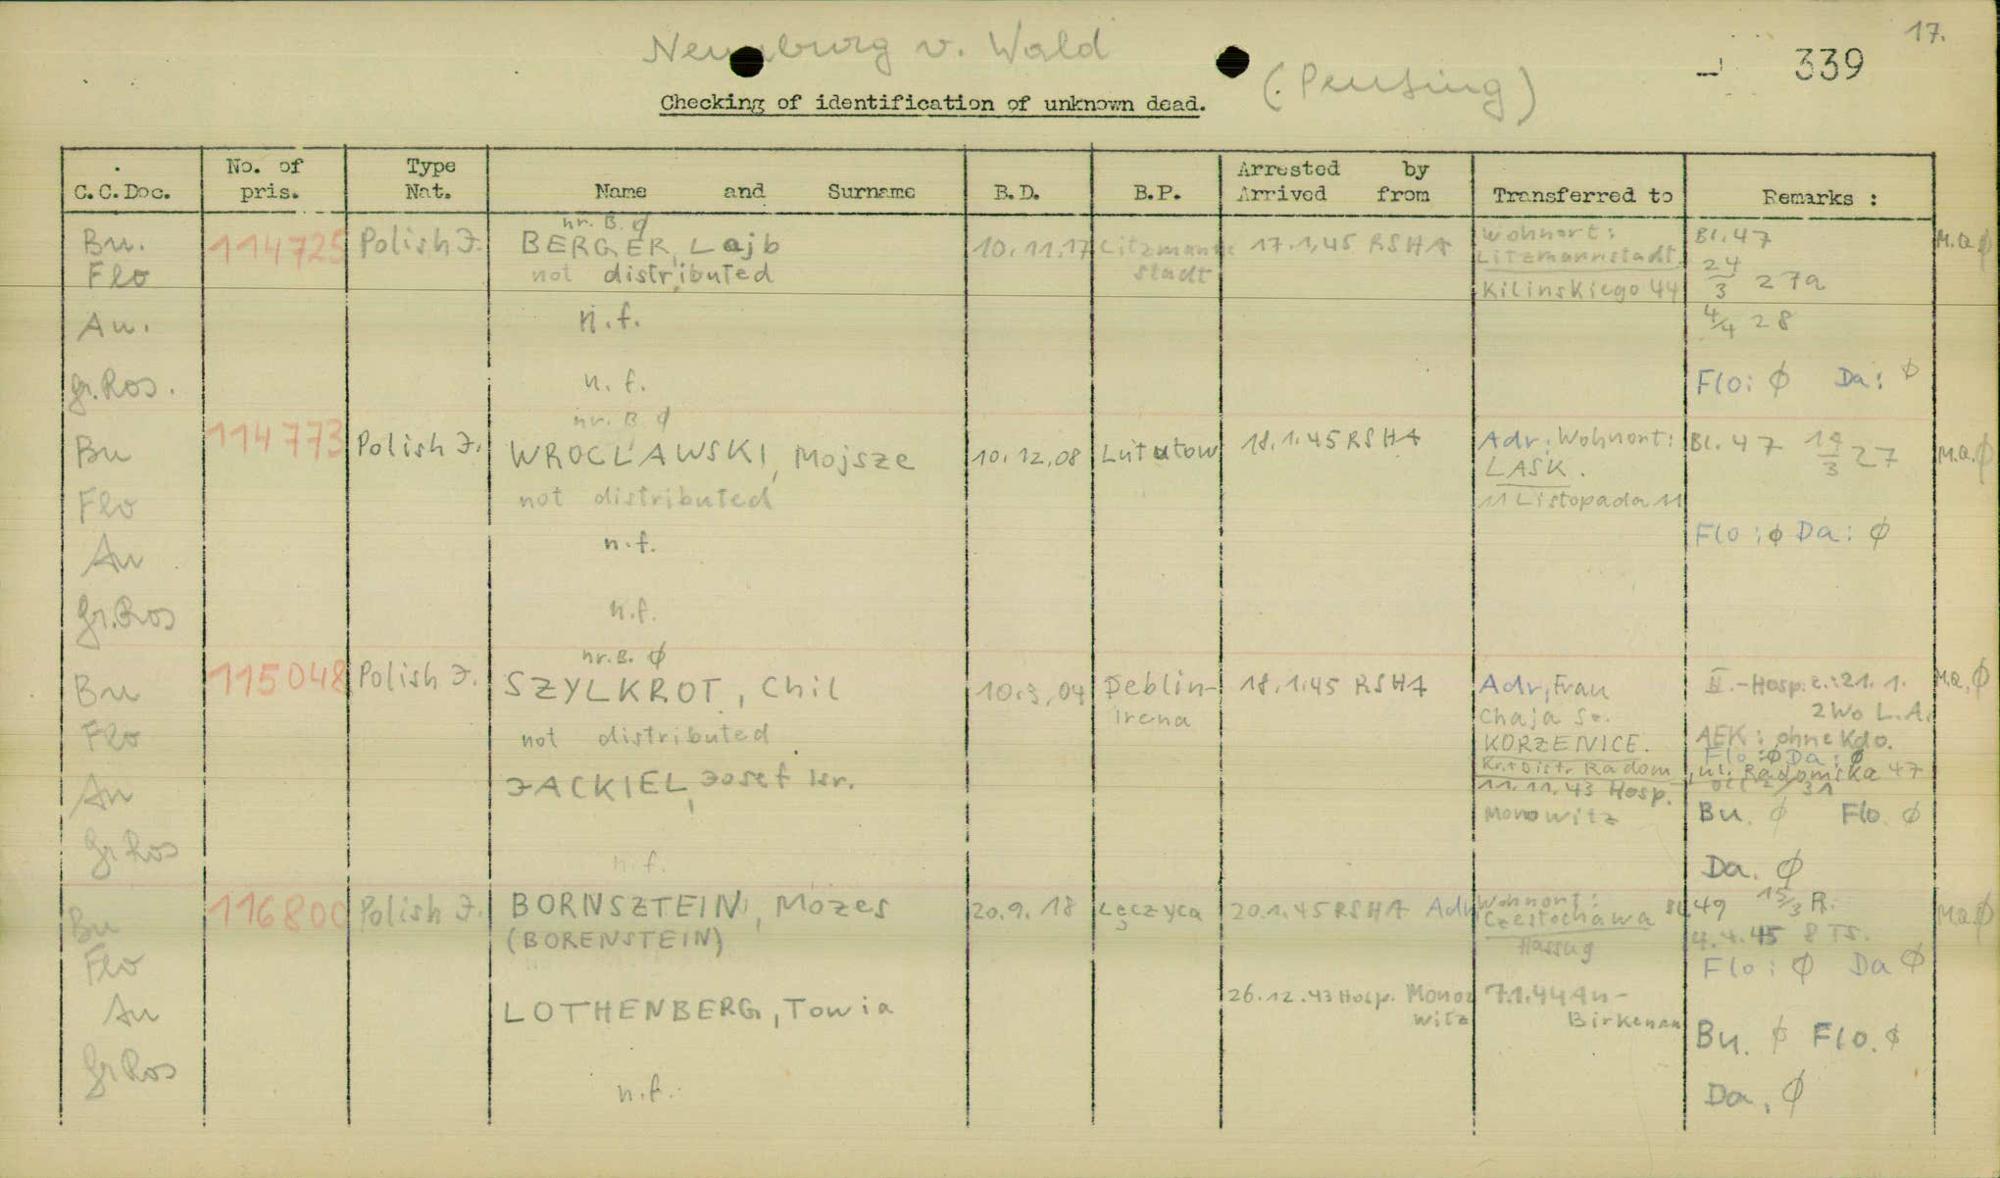 17.
Neunburg v. Wald
339
(Penting)
Checking of identification of unknown dead.
C.C.Doc. No. of pris. Type Nat. Name and Surname B.D. B.P. Arrested by Arrived from Transferred to Remarks :
nr. B. ∅
Bu. 114725 Polish J. BERGER, Lajb 10.11.17 Litzmann- 17.1.45 RSHA Wohnort: Bl. 47 M.a ∅
Flo not distributed stadt Litzmannstadt 24/3 27a
Kilinskiego 44
Au. n.f. 4/4 28
gr.Ros. n.f. Flo: ∅ Da: ∅
nr. B ∅
Bu 114773 Polish J. WROCLAWSKI, Mojsze 10.12.08 Lututow 18.1.45 RSHA Adr: Wohnort: Bl. 47 27 M.a. ∅
LASK.
Flo not distributed 11 Listopada 11
An n.f. Flo: ∅ Da: ∅
Gr.Ros n.f.
nr. B. ∅
Bu 115048 Polish J. SZYLKROT, Chil 10.3.04 Deblin- 18.1.45 RSHA Adr, Frau II.-Hosp. E.: 21.1. M.a. ∅
Irena Chaja Sz. 2Wo L.A.
Flo not distributed KORZENICE. AEK: ohne Kdo.
Flo ∅ Da: ∅
Kr.+Distr. Radom, ul. Radomska 47
An JACKIEL, Josef Isr. 11.11.43 Hosp.
Monowitz Bu. ∅ Flo. ∅
Gr Ros n.f. Da. ∅
Bu 116800 Polish J. BORNSZTEIN, Mozes 20.9.18 Lęczyca 20.1.45 RSHA Adr Wohnort: Bl. 49 15/3 R. M.a ∅
(BORENSTEIN) Czestochawa 4.4.45 8 TS.
Flo Hassag Flo: ∅ Da ∅
An LOTHENBERG, Towia 26.12.43 Hosp. Monowitz 7.1.44 Au-
Birkenau Bu. ∅ Flo. ∅
Gr Ros n.f. Da. ∅